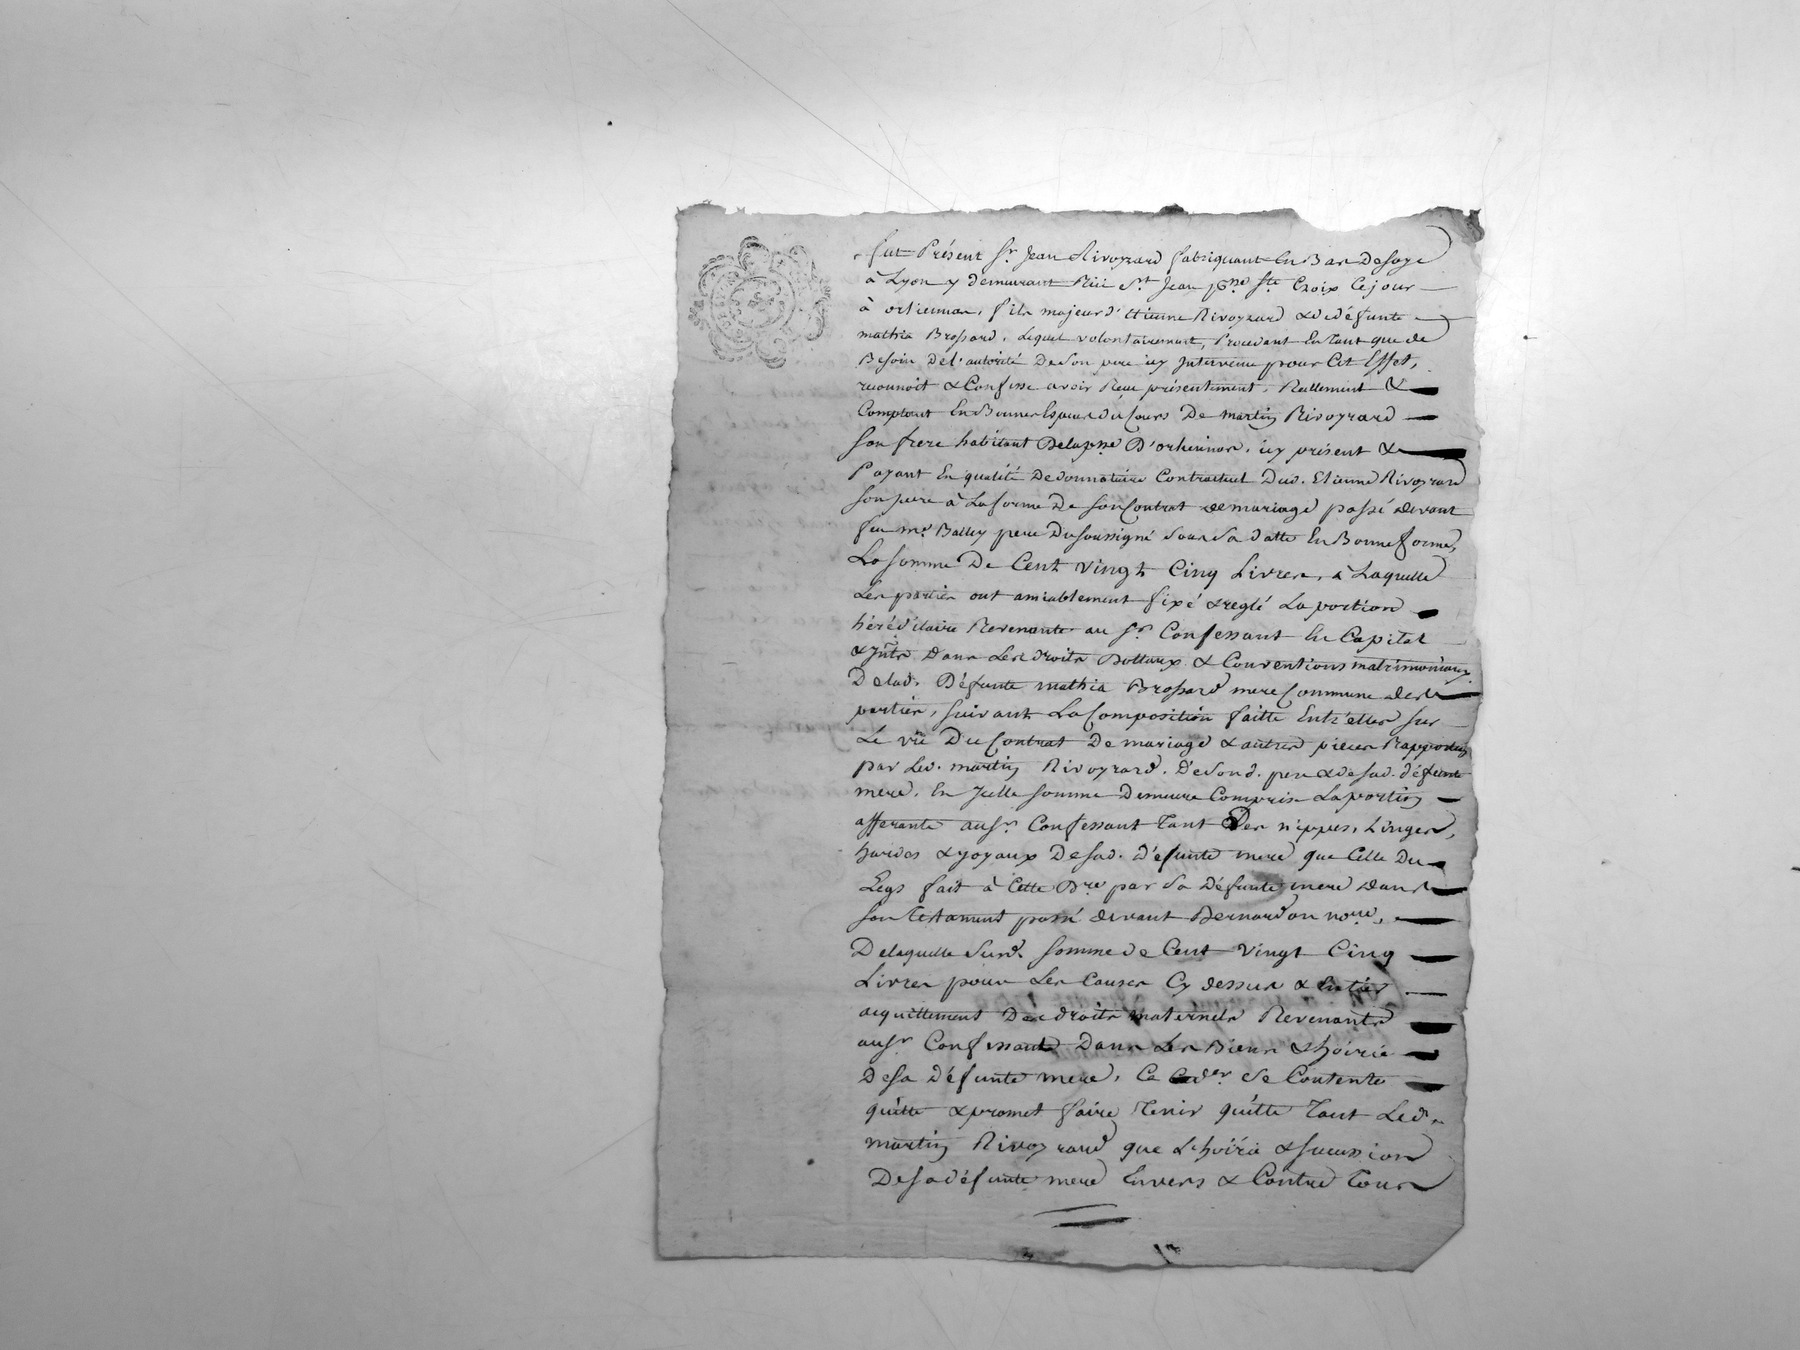 fut Présent Sr. Jean Rivoyrard fabriquant En Bas De soye
à Lyon y demeurant Rüe St Jean psse Ste Croix Ce jour
à orlienuas, fils majeur d'Etienne Rivoyrard & de défunte
mathia Brossard, Lequel volontairement, Procedant En Tant que de
Besoin De l'autorité De son pere icy Intervenu pour Cet Effet,
reconnoit & Confesse avoir Reçu présentement, Reellement &
Comptant En Bonnes Espèces du Cours De martin Rivoyrard
son frere habitant De la psse D'orlienuas, icy présent &
Payant En qualité De donnataire Contractuel Dud. Etienne Rivoyrard
son pere à La forme De son Contrat de mariage passé devant
feu me. Balley pere Du soussigné sous sa datte En Bonne forme,
La somme De Cent vingt Cinq Livres, à Laquelle
Les parties ont amiablement fixé & reglé La portion
héréditaire Revenante au Sr. Confessant En Capital
& Jnts. Dans Les droits Dottaux & Conventions matrimoniaux
De lad. Défunte mathia Brossard mere Commune des
parties, suivant La Composition faitte Entr'elles sur
Le vû Du Contrat De mariage & autres pieces Rapportées
par Led. martin Rivoyrard. De sond. pere & de sad. défunte
mere, En Jcelle somme Demeure Comprise La portion
afferante au Sr. Confessant Tant Des nippes, Linges,
hardes & joyaux De sad. défunte mere que Celle Du
Legs fait à Cette Dre par sa Défunte mere dans
son Testament passé devant Bernardon nore,
De laquelle Susd. somme de Cent vingt Cinq
Livres pour Les Causes Cy dessus & Entier
acquittement Des droits maternels Revenants
au Sr Confessant Dans Les Biens & hoirie
De sa défunte mere, Ce der se Contente
quitte & promet faire Tenir quitte Tant Led.
martin Rivoyrard que L'hoirie & succession
De sa défunte mere Envers & Contre Tous